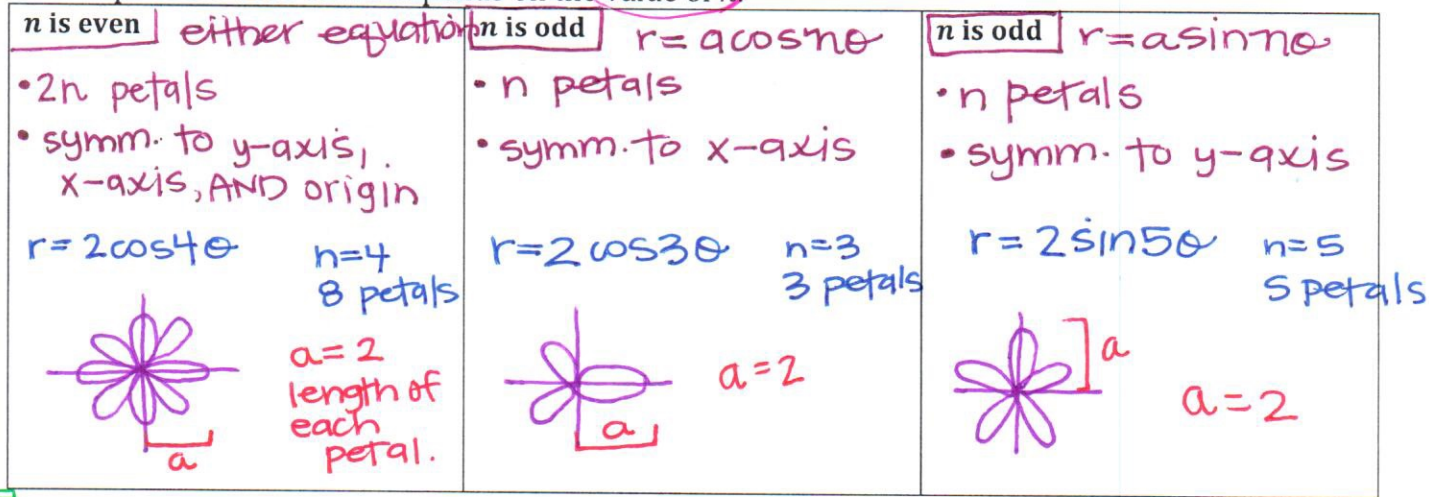 n is even either equation
• 2n petals
• symm. to y-axis,
x-axis, AND origin
r = 2cos4θ n=4
8 petals
a=2
length of
each
petal.
a
n is odd r=acosnθ
• n petals
• symm. to x-axis
r=2cos3θ n=3
3 petals
a=2
a
n is odd r=asinnθ
• n petals
• symm. to y-axis
r=2sin5θ n=5
5 petals
a
a=2